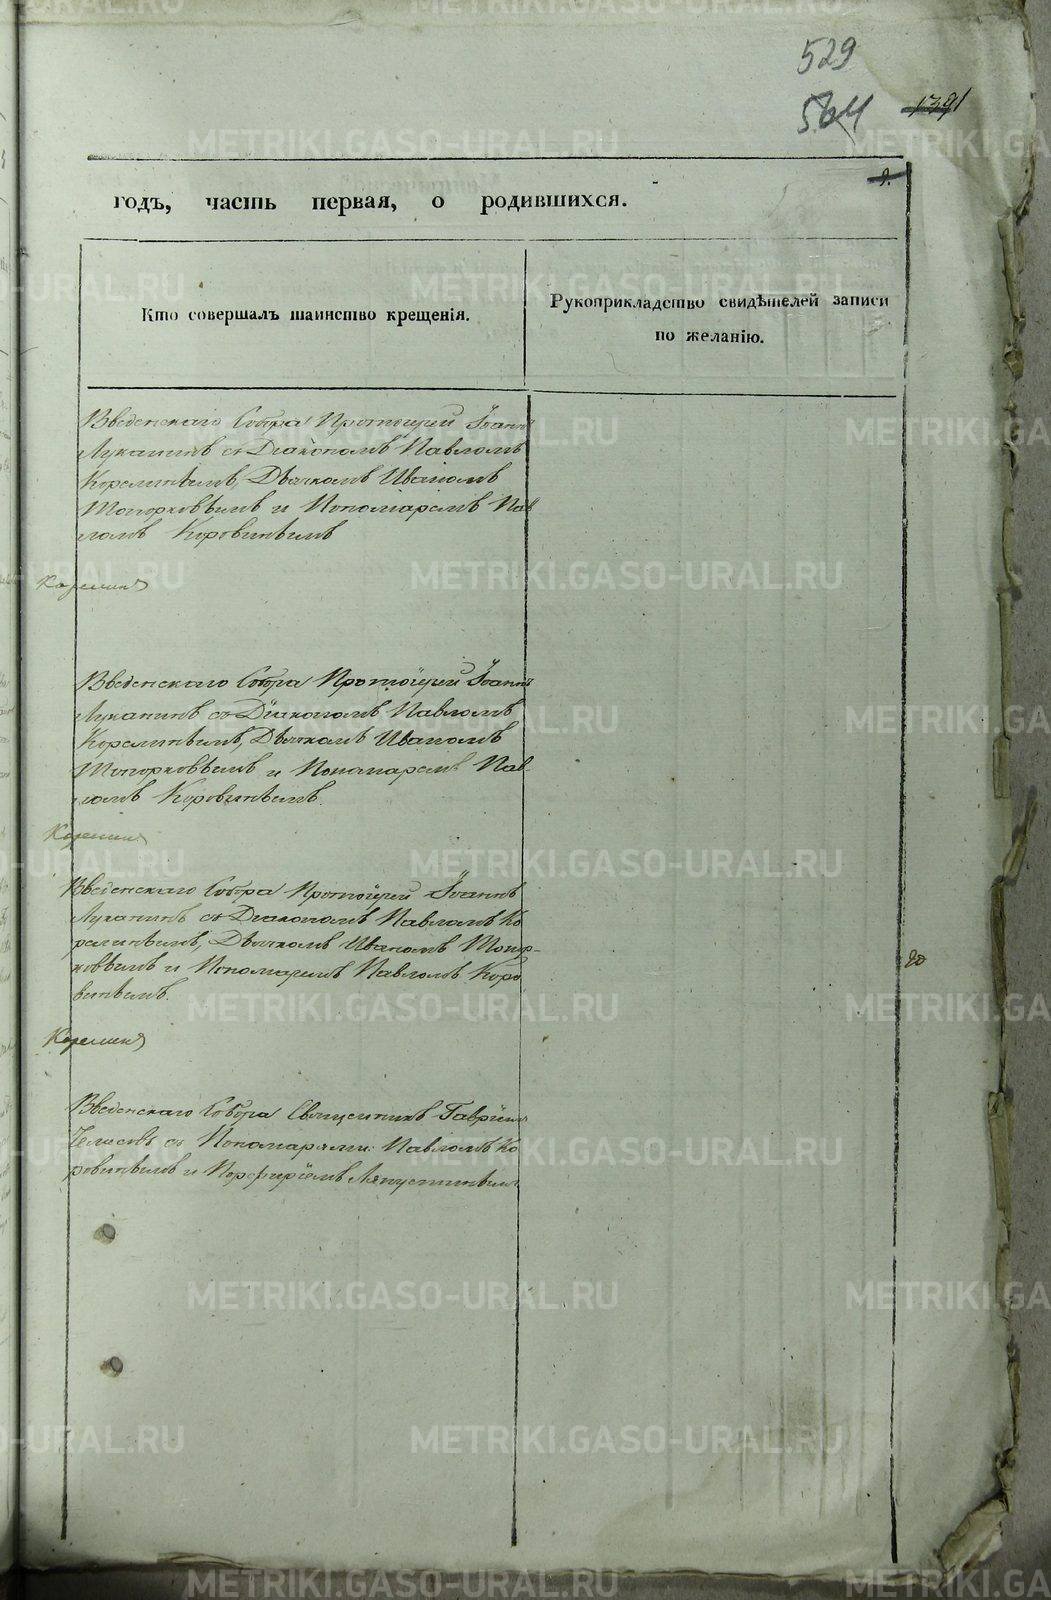 529
564
1391
9.
годъ, часть первая, о родившихся.
Кто совершалъ таинство крещенія.
Рукоприкладство свидѣтелей записи
по желанію.
Введенскаго Собора Протоіерей Іоаннъ
Луканинъ съ Діакономъ Павломъ
Корелинымъ, Дьячкомъ Иваномъ
Топорковымъ и Пономаремъ Пав
ломъ Коровинымъ
Введенскаго Собора Протоіерей Іоаннъ
Луканинъ съ Діакономъ Павломъ
Корелинымъ, Дьячкомъ Иваномъ
Топорковымъ и Пономаремъ Пав-
ломъ Коровинымъ.
Введенскаго Собора Протоіерей Іоаннъ
Луканинъ съ Діакономъ Павломъ Ко
релинымъ, Дьячкомъ Иваномъ Топор-
ковымъ и Пономаремъ Павломъ Коро
винымъ.
Введенскаго Собора Священникъ Гавріилъ
съ Пономарями: Павломъ Ко
ровинымъ и Порфиріемъ Ляпустинымъ
METRIKI.GASO-URAL.RU